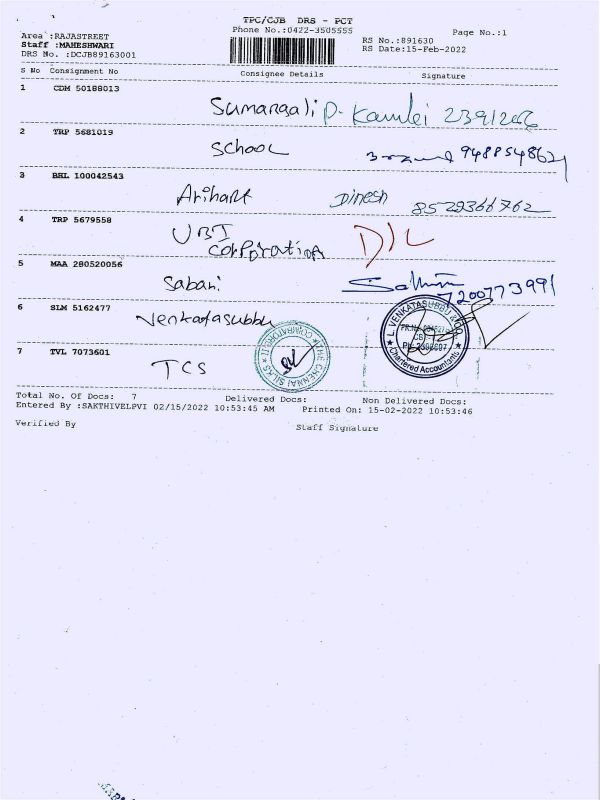 TPC/CJB DRS - PCT
Phone No.:0422-3505555
Page No.:1
Area :RAJASTREET
Staff :MAHESHWARI
DRS No. :DCJB89163001
RS No.:891630
RS Date:15-Feb-2022
S No Consignment No Consignee Details Signature
1 CDM 50188013
Sumangali
2 TRP 5681019
School 9488548621
3 BHL 100042543
Arihant Dinesh 8529366762
4 TRP 5679558
UBI
Corporation D/L
5 MAA 280520056
Sabari
7200773991
6 SLM 5162477
Venkatasubbu
L. VENKATASUBBU & CO.
Chartered Accountants
7 TVL 7073601
TCS
THE CHENNAI SILKS
Total No. Of Docs: 7 Delivered Docs: Non Delivered Docs:
Entered By :SAKTHIVELPVI 02/15/2022 10:53:45 AM Printed On: 15-02-2022 10:53:46
Verified By Staff Signature